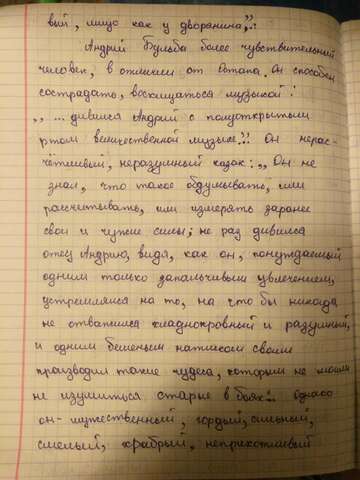 вый, лицо как у дворянина,”.
Андрий Бульба более чувствительный
человек, в отличии от Остапа. Он способен
сострадать, восхищаться музыкой:
„ ... дивился Андрий с полуоткрытым
ртом величественной музыке.” Он нерас-
чётливый, неразумный казак: „ Он не
знал, что такое обдумывать, или
рассчитывать, или измерять заранее
свои и чужие силы; не раз дивился
отец Андрию, видя, как он, понуждаемый
одним только запальчивым увлечением,
устремлялся на то, на что бы никогда
не отважился хладнокровный и разумный,
и одним бешеным натиском своим
производил такие чудеса, которым не могли
не изумиться старые в боях”. Однако
он- мужественный, гордый, сильный,
смелый, храбрый, неприхотливый